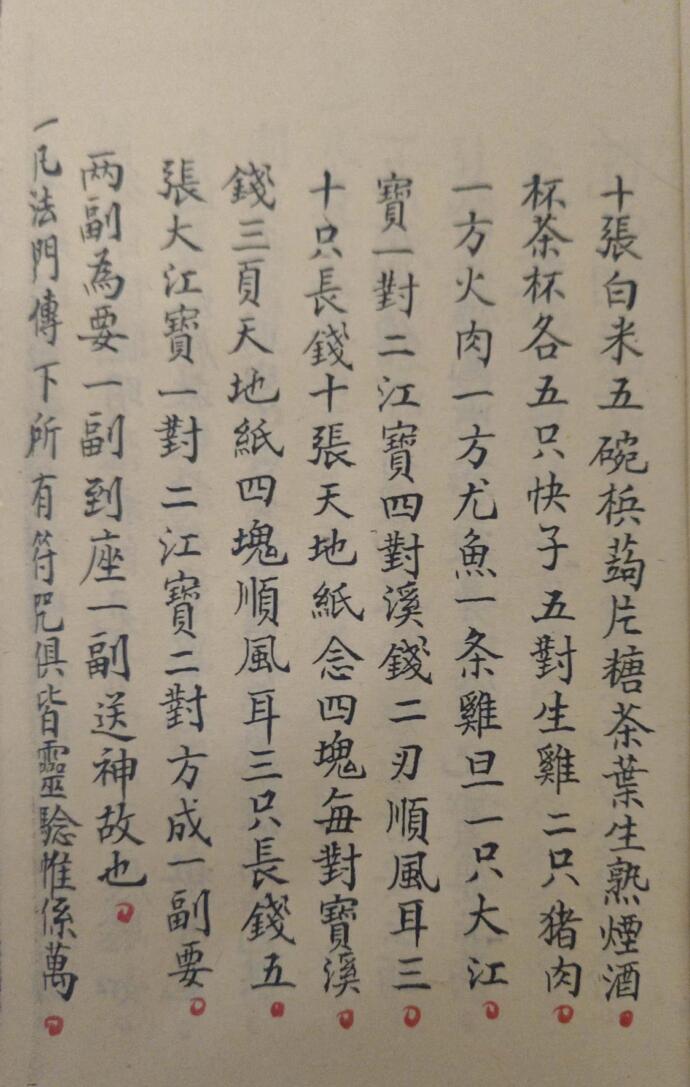 十張白米五碗梹蒟片糖茶葉生熟煙酒
杯茶杯各五只快子五對生雞二只猪肉
一方火肉一方尤魚一条雞旦一只大江
寶一對二江寶四對溪錢二刃順風耳三
十只長錢十張天地紙念四塊每對寶溪
錢三頁天地紙四塊順風耳三只長錢五
張大江寶一對二江寶二對方成一副要
两副為要一副到座一副送神故也
一凡法門傳下所有符咒俱皆靈驗惟係萬